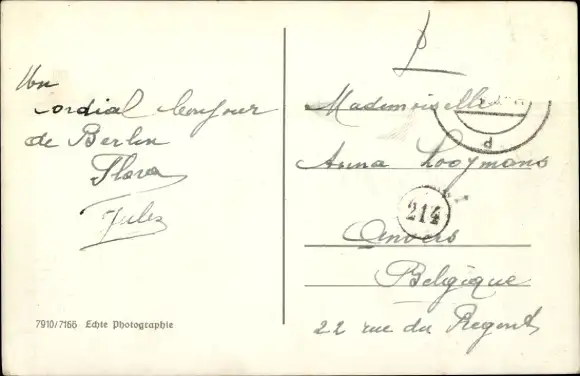 Un
cordial bonjour
de Berlin
Flora
Jules
7910/7166 Echte Photographie
Mademoiselle
Anna Looymans
214
Anvers
Belgique
22 rue du Régent